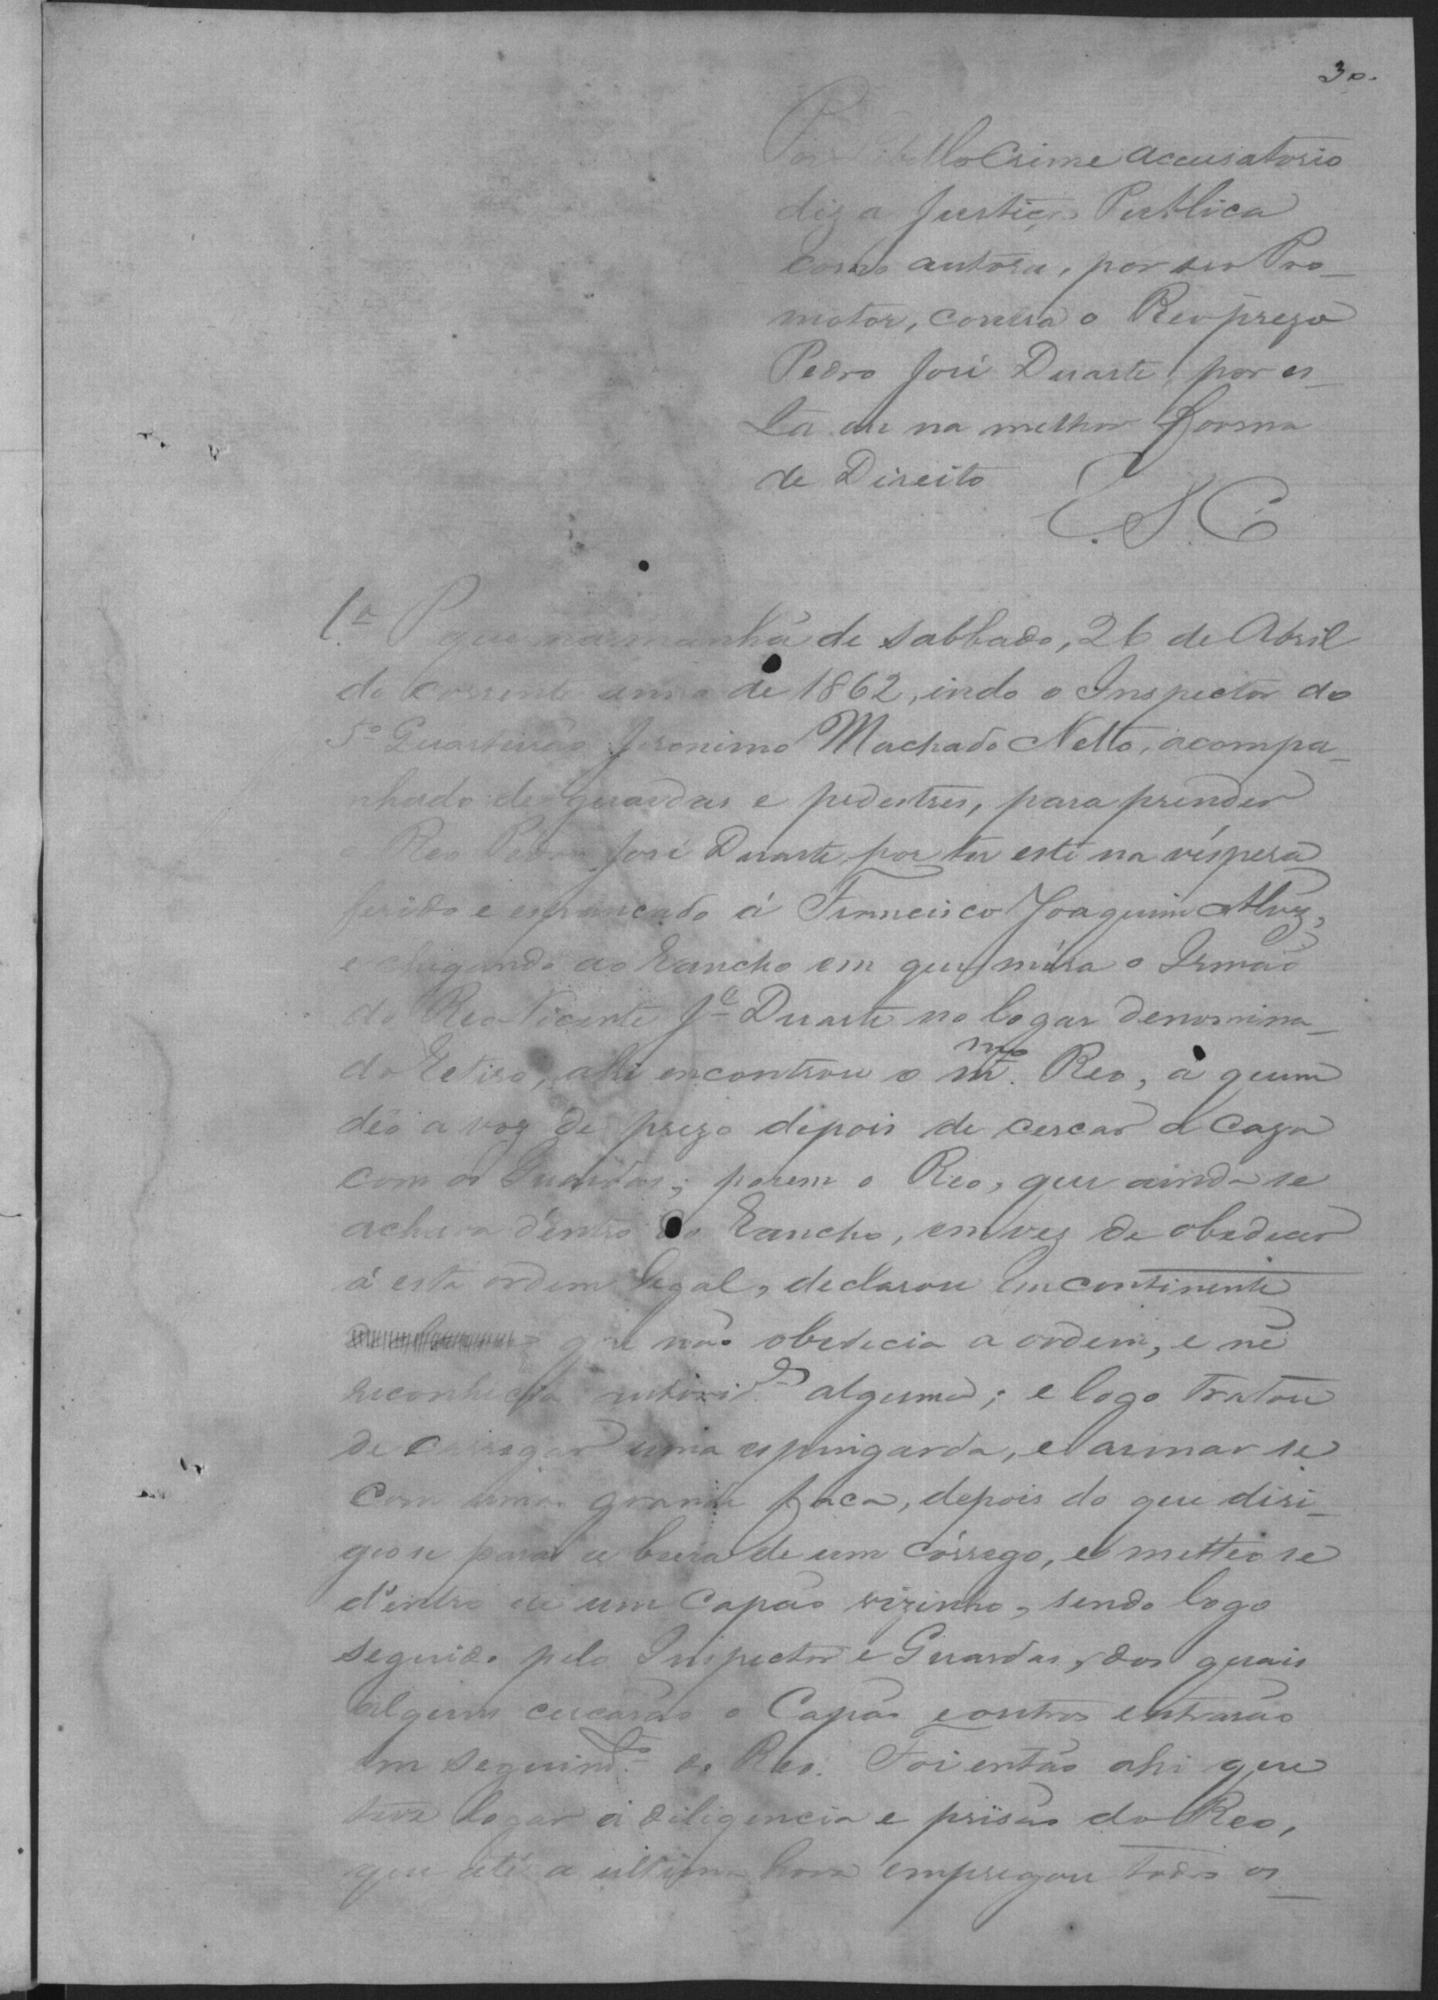 30.
Por Libello Crime accusatorio
diz a Justiça Publica
como autora, por seo Pro-
motor, contra o Reo prezo
Pedro José Duarte, por es-
ta ou na melhor forma
de Direito
E. S. C.
1º P. que na manhã de sabbado, 26 de Abril
do corrente anno de 1862, indo o Inspector do
5º Quarteirão Jeronimo Machado Netto, acompa-
nhado de guardas e pedestres, para prender
o Reo Pedro José Duarte por ter este na véspera
ferido e espancado á Francisco Joaquim Alvz,
e chegando ao Rancho em que móra o Irmão
do Reo Vicente Jé Duarte no logar denomina-
do Retiro, ahi encontrou o mmo. Reo, á quem
déo a voz de prezo depois de cercar a caza
com os Guardas; porem o Reo, que ainda se
achava dentro do Rancho, em vez de obedecer
á esta ordem legal, declarou incontinente
que não obedecia a ordem, e nẽ
reconhecia autorid.e alguma; e logo tratou
de carregar uma espingarda, e armar se
com uma grande faca, depois do que diri-
gio se para a beira de um córrego, e metteo se
dentro de um capão vizinho, sendo logo
seguido pelo Inspector e Guardas, dos quais
alguns cercarão o Capão e outros entrarão
em seguim.to do Reo. Foi então ahi que
teve logar a diligencia e prisão do Reo,
que até a ultima hora empregou todos os